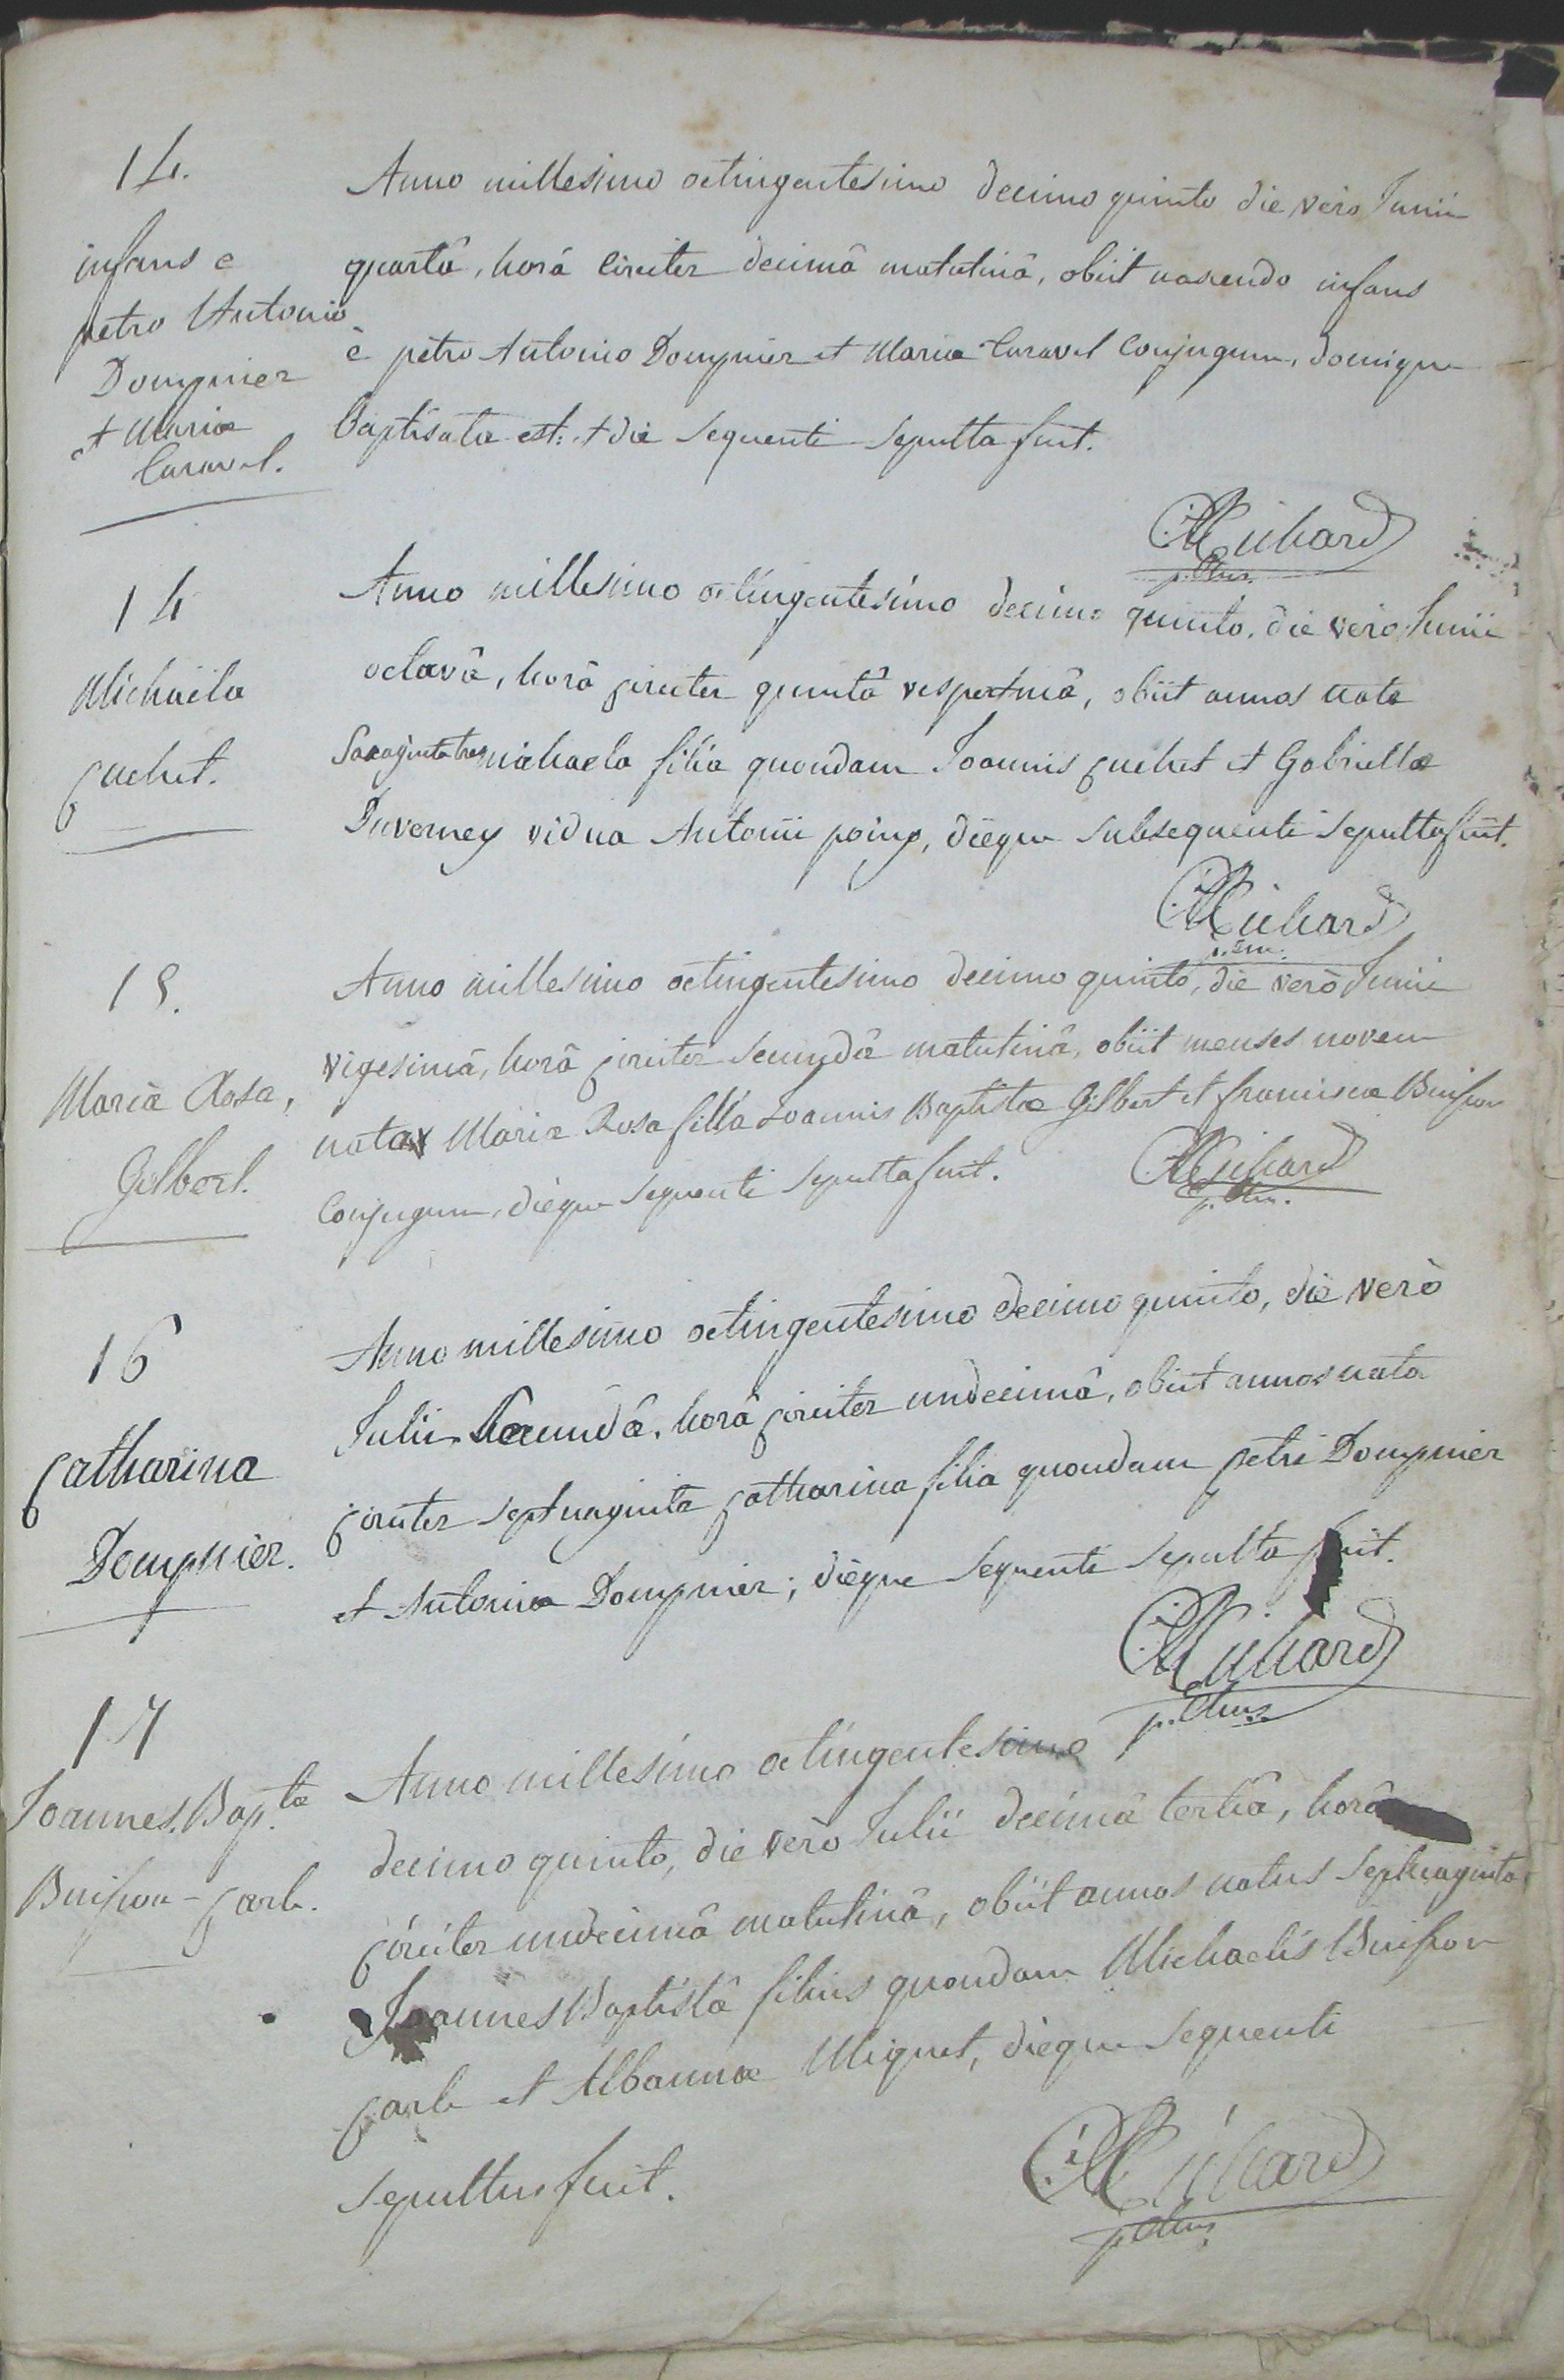 14.
infans e
petro Antonio
Dompnier
et Mariæ
Caravel.
Anno millesimo octingentesimo decimo quinto die vero Junii
quartâ, horâ circiter decimâ matutinâ, obiit nascendo infans
è petro Antonio Dompnier et Mariæ Caravel Conjugum, domique
baptisata est: et die sequenti sepulta fuit.
Richard
14
Michaëla
Cuchet.
Anno millesimo octingentesimo decimo quinto, die verò Junii
octavâ, horâ circiter quintâ vespertinâ, obiit annos nata
sexaginta tres michaela filia quondam Joannis Cuchet et Gabriellæ
Duverney vidua Antonii poing, dieque subsequenti sepulta fuit.
Richard
15.
Maria Rosa,
Gilbert.
Anno millesimo octingentesimo decimo quinto, die verò Junii
vigesimâ, horâ circiter secundâ matutinâ, obiit menses novem
nata Maria Rosa filia Joannis Baptistæ Gilbert et franciscæ Buisson
Conjugum, dièque sequenti sepulta fuit.
Richard
16
Catharina
Dompnier.
Anno millesimo octingentesimo decimo quinto, die verò
Julii secundâ, horâ circiter undecimâ, obiit annos nata
circiter septuaginta Catharina filia quondam petri Dompnier
et Antoniæ Dompnier; dièque sequenti sepulta fuit.
Richard
17
Joannes. Bap.ta
Buisson-Carle.
Anno millesimo octingentesimo
decimo quinto, die verò Julii decimâ tertiâ, horâ
circiter undecimâ matutinâ, obiit annos natus septuaginta
Joannes Baptistâ filius quondam Michaelis Buisson
Carle et Albannæ Miquet, dieque sequenti
sepultus fuit.
Richard